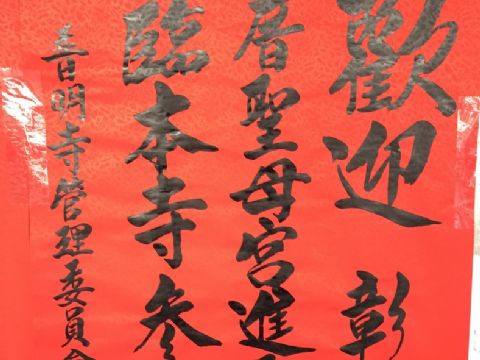 歡迎 彰
厝聖母宮進
臨本寺參
明寺管理委員會